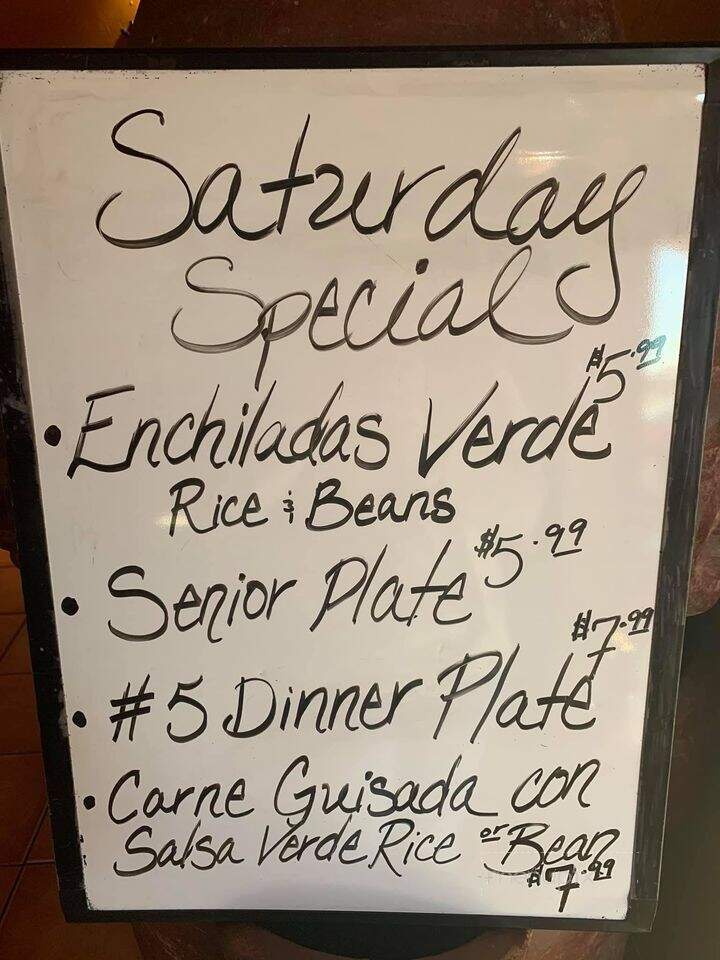 Saturday
Special
• Enchiladas Verde $5.99
Rice & Beans
• Senior Plate $5.99
• #5 Dinner Plate $7.99
• Carne Guisada con
Salsa Verde Rice or Bean
$7.99